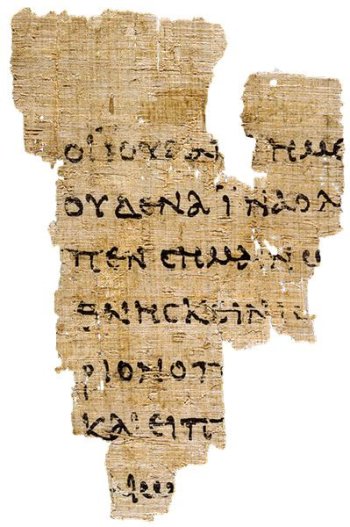 ΟΙ ΙΟΥΔΑΙ ΗΜΕ
ΟΥΔΕΝΑ ΪΝΑ Ο Λ
ΠΕΝ CΗΜΑΙΝω
ΘΝΗCΚΕΙΝ Ι
ΡΙΟΝ Ο Π
ΚΑΙ ΕΙΠ
ΑΙω